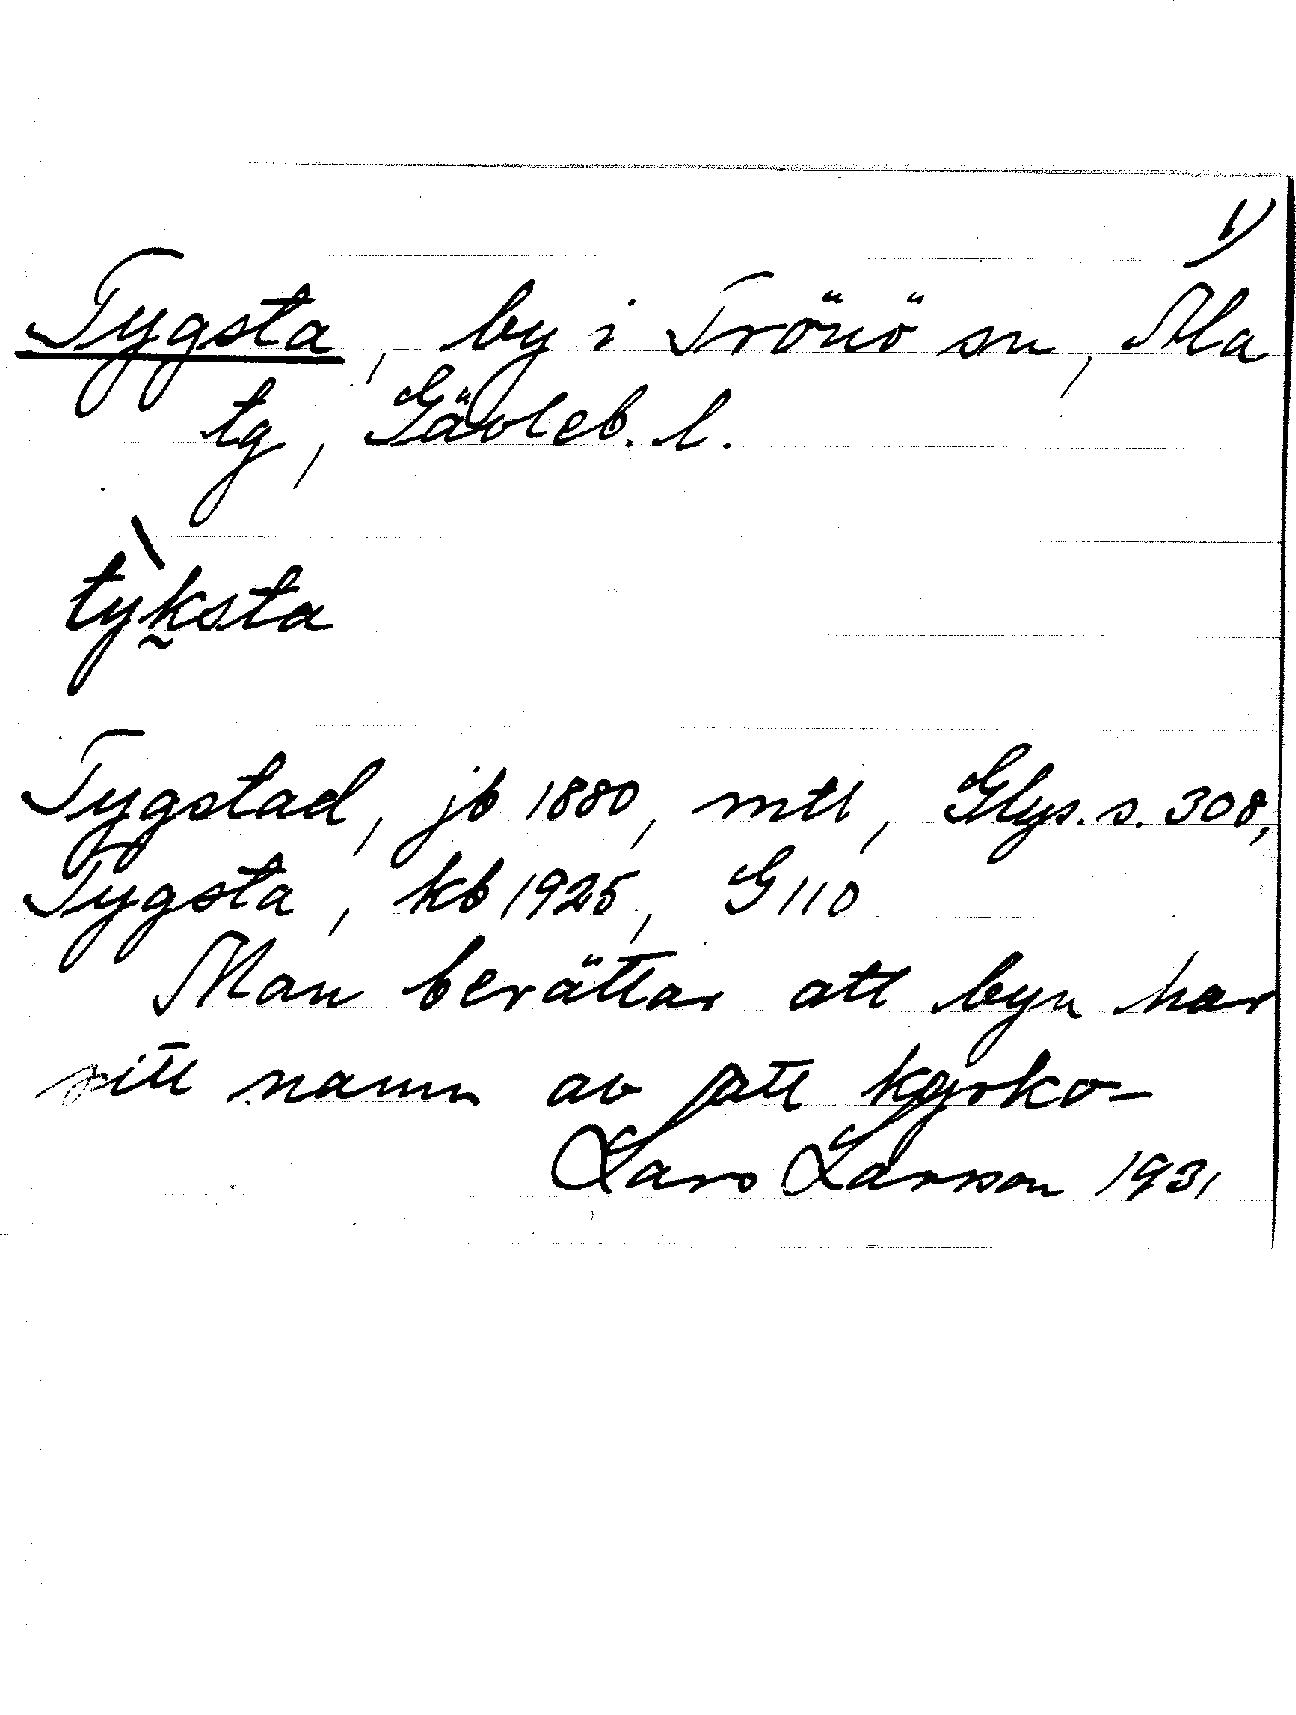 1)
Tygsta, by i Trönö sn, Ala
tg, Gävleb. l.
tỳksta
Tygstad, jb 1880, mtl, Glys. s. 308,
Tygsta, kb 1925, G 110
Man berättar att byn har
sitt namn av att kyrko-
Lars Larsson 1931